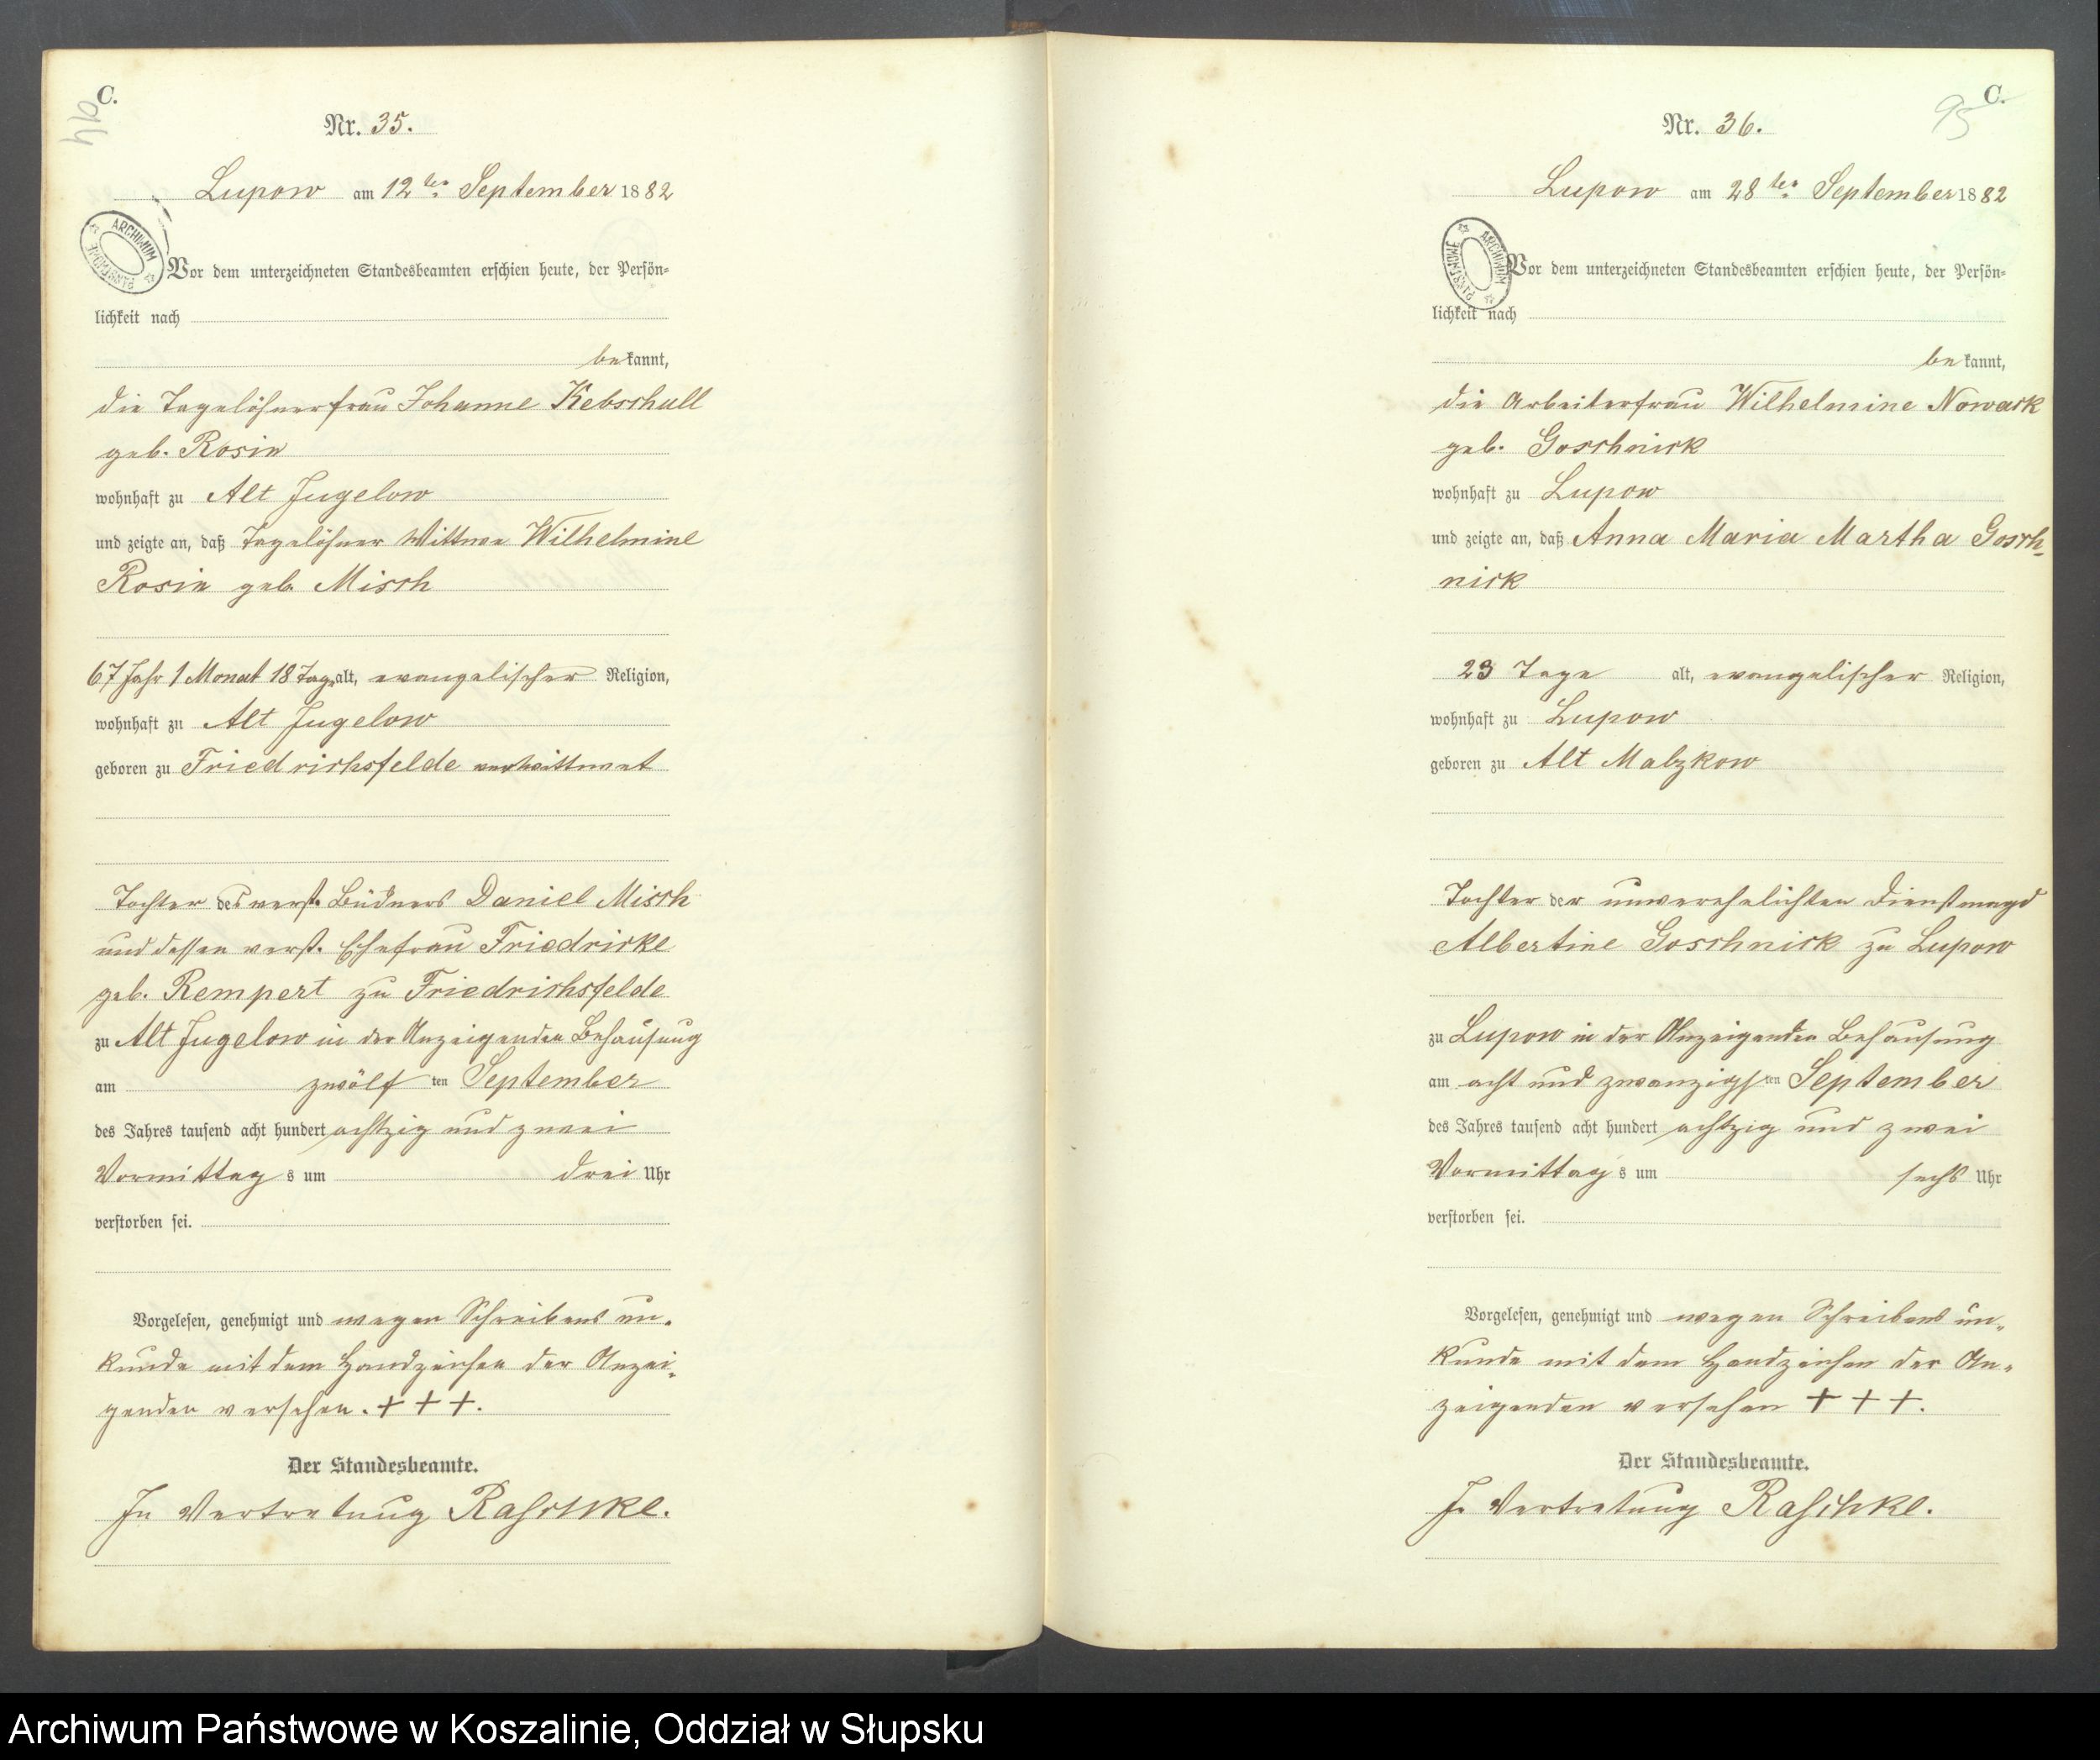 C.
94
Nr. 35.
Lupow am 12ten September 1882
ARCHIWUM PAŃSTWOWE
Vor dem unterzeichneten Standesbeamten erschien heute, der Persön=
lichkeit nach
bekannt,
die Tagelöhnerfrau Johanne Kebschull
geb. Rosin
wohnhaft zu Alt Jugelow
und zeigte an, daß Tagelöhner Wittwe Wilhelmine
Rosin geb. Misch
67 Jahr 1 Monat 18 Tage alt, evangelischer Religion,
wohnhaft zu Alt Jugelow
geboren zu Friedrichsfelde verwittwet
Tochter des verst. Büdners Daniel Misch
und dessen verst. Ehefrau Friedricke
geb. Rempert zu Friedrichsfelde
zu Alt Jugelow in der Anzeigenden Behausung
am zwölf ten September
des Jahres tausend acht hundert achtzig und zwei
Vormittag s um drei Uhr
verstorben sei.
Vorgelesen, genehmigt und wegen Schreibens un=
kunde mit dem Handzeichen der Anzei=
genden versehen. + + +.
Der Standesbeamte.
In Vertretung Raschke.
C.
95
Nr. 36.
Lupow am 28ten September 1882
ARCHIWUM PAŃSTWOWE
Vor dem unterzeichneten Standesbeamten erschien heute, der Persön=
lichkeit nach
bekannt,
die Arbeiterfrau Wilhelmine Nowack
geb. Goschnick
wohnhaft zu Lupow
und zeigte an, daß Anna Maria Martha Gosch=
nick
23 Tage alt, evangelischer Religion,
wohnhaft zu Lupow
geboren zu Alt Malzkow
Tochter der unverehelichten Dienstmagd
Albertine Goschnick zu Lupow
zu Lupow in der Anzeigenden Behausung
am acht und zwanzigsten September
des Jahres tausend acht hundert achtzig und zwei
Vormittag s um sechs Uhr
verstorben sei.
Vorgelesen, genehmigt und wegen Schreibens un=
kunde mit dem Handzeichen der An=
zeigenden versehen + + +.
Der Standesbeamte.
In Vertretung Raschke.
Archiwum Państwowe w Koszalinie, Oddział w Słupsku